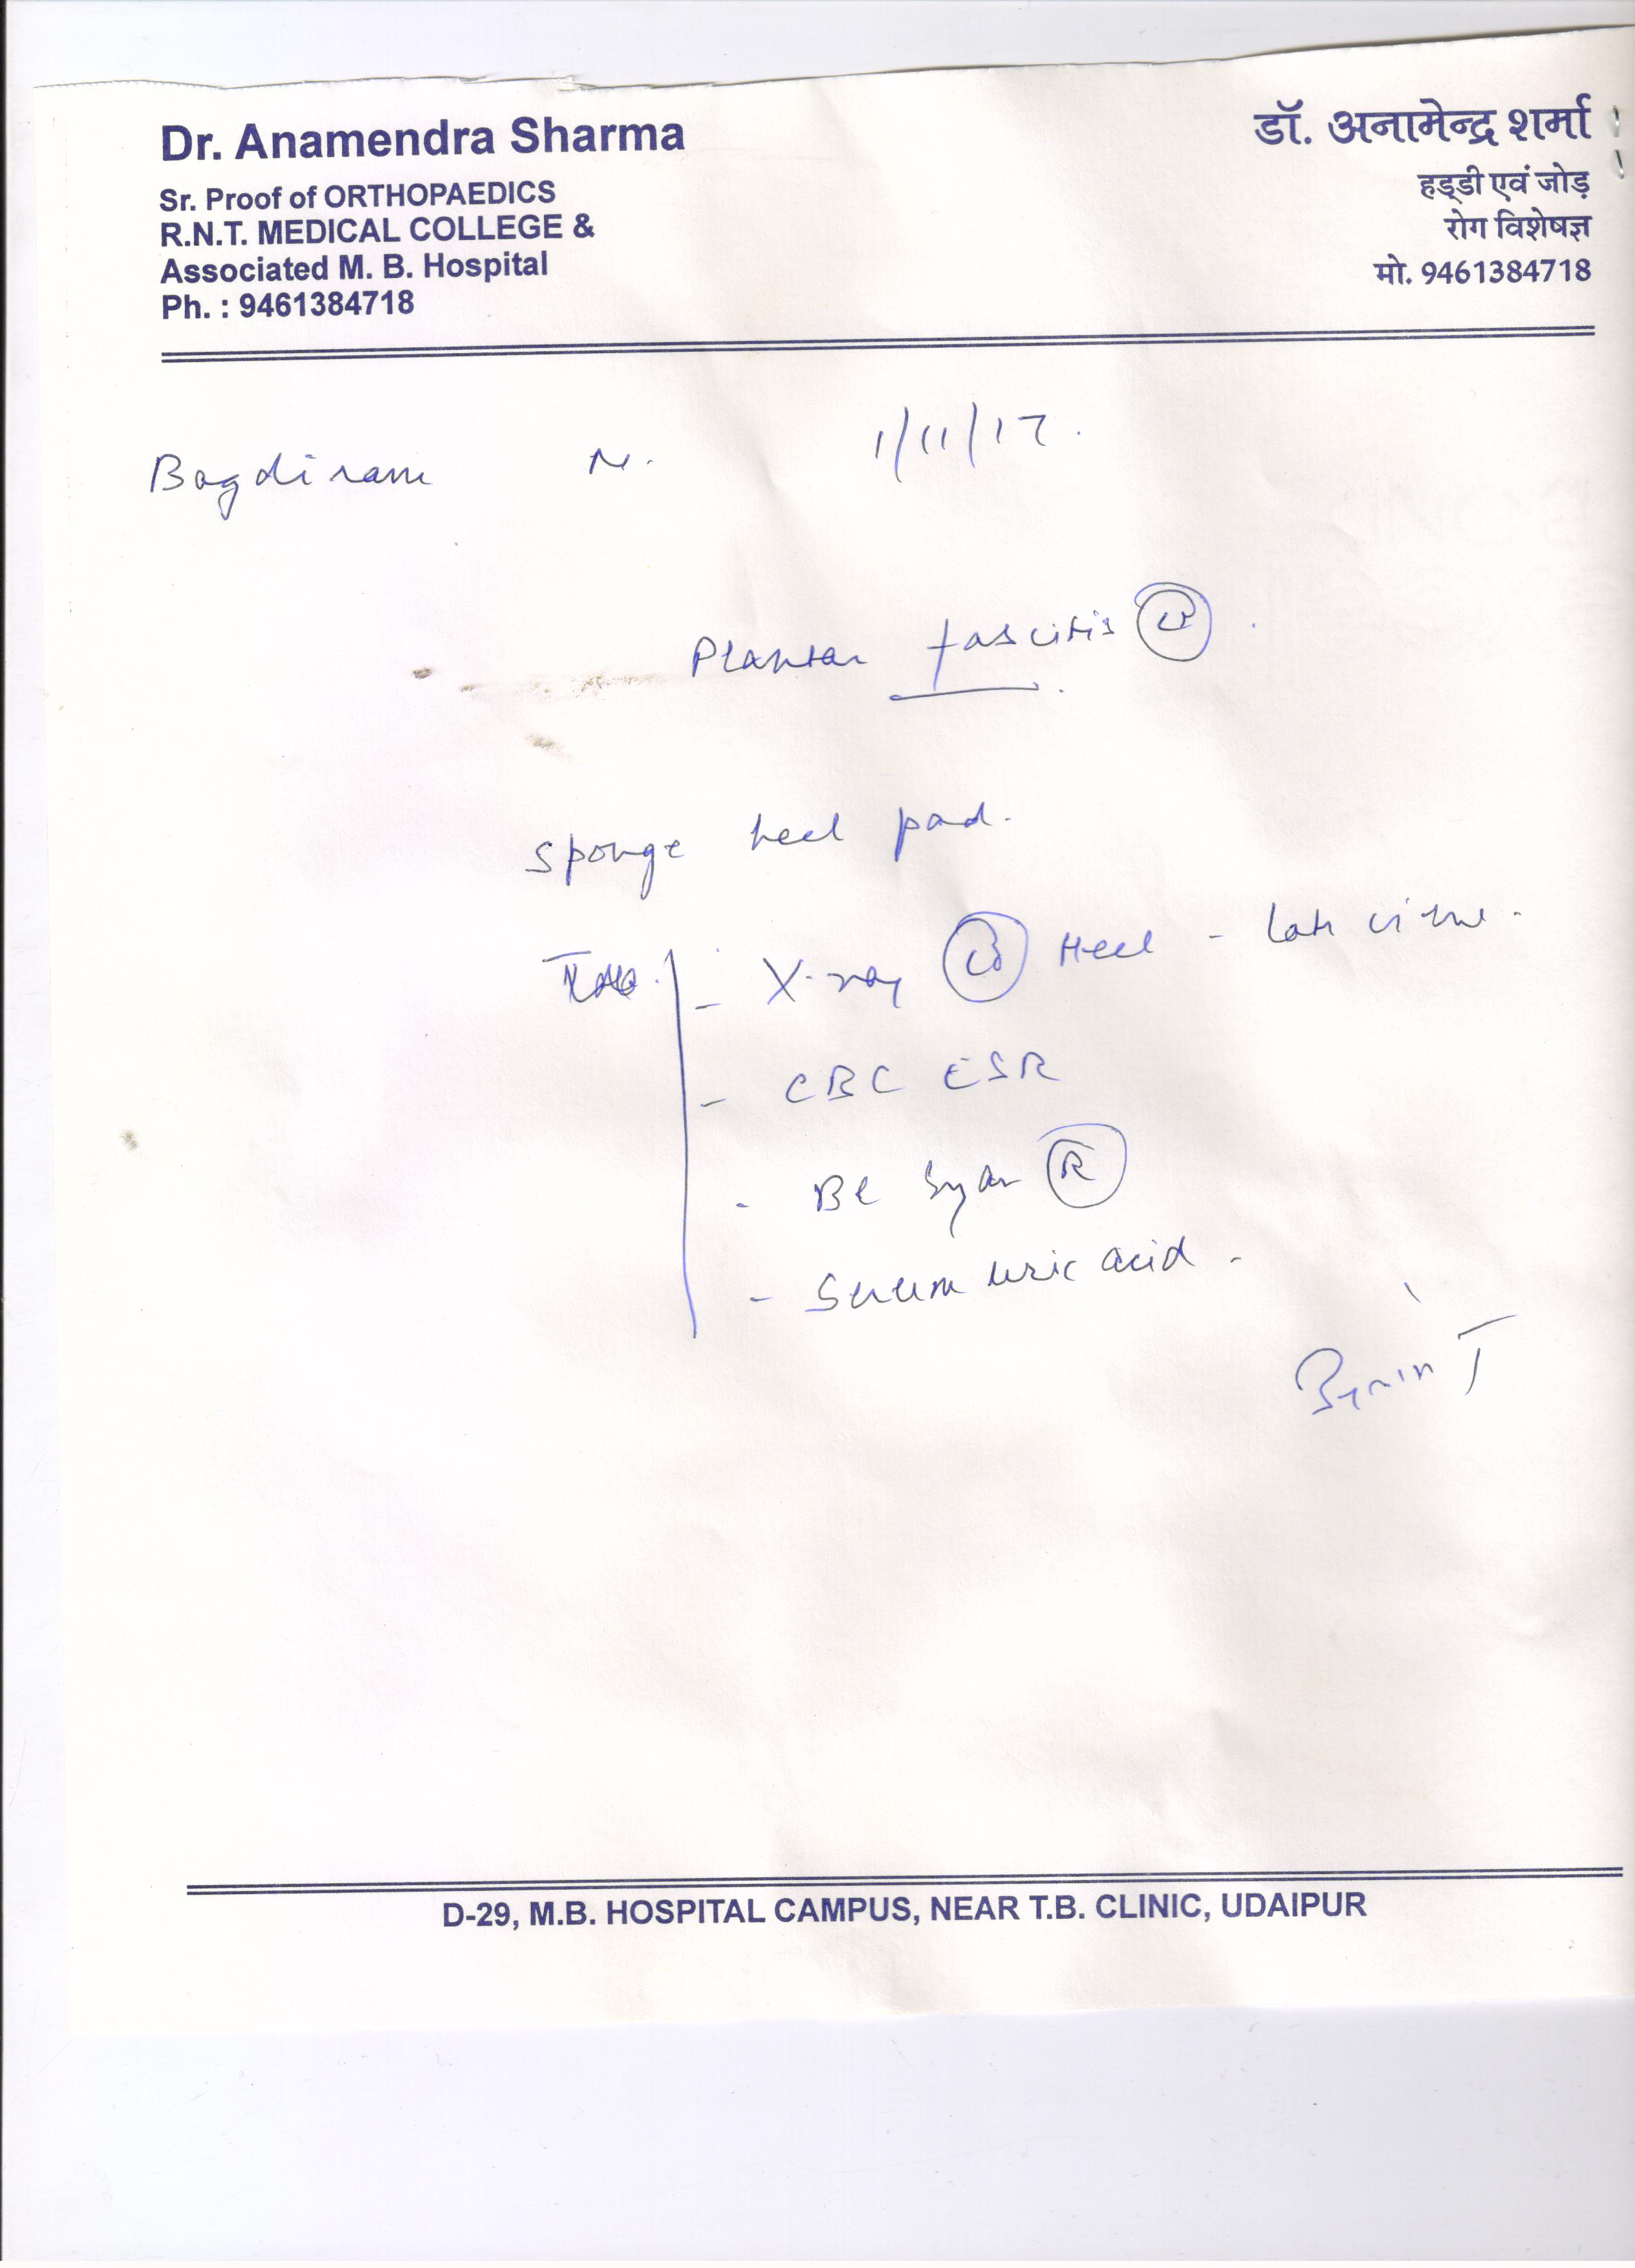 Dr. Anamendra Sharma
Sr. Proof of ORTHOPAEDICS
R.N.T. MEDICAL COLLEGE &
Associated M. B. Hospital
Ph. : 9461384718
डॉ. अनामेन्द्र शर्मा
हड्डी एवं जोड़
रोग विशेषज्ञ
मो. 9461384718
Bagdiram M. 1/11/17.
Plantar fascitis
sponge heel pad.
- X-ray Heel - Lat view.
- CBC ESR
- Bl Sugar R
- Serum uric acid -
D-29, M.B. HOSPITAL CAMPUS, NEAR T.B. CLINIC, UDAIPUR